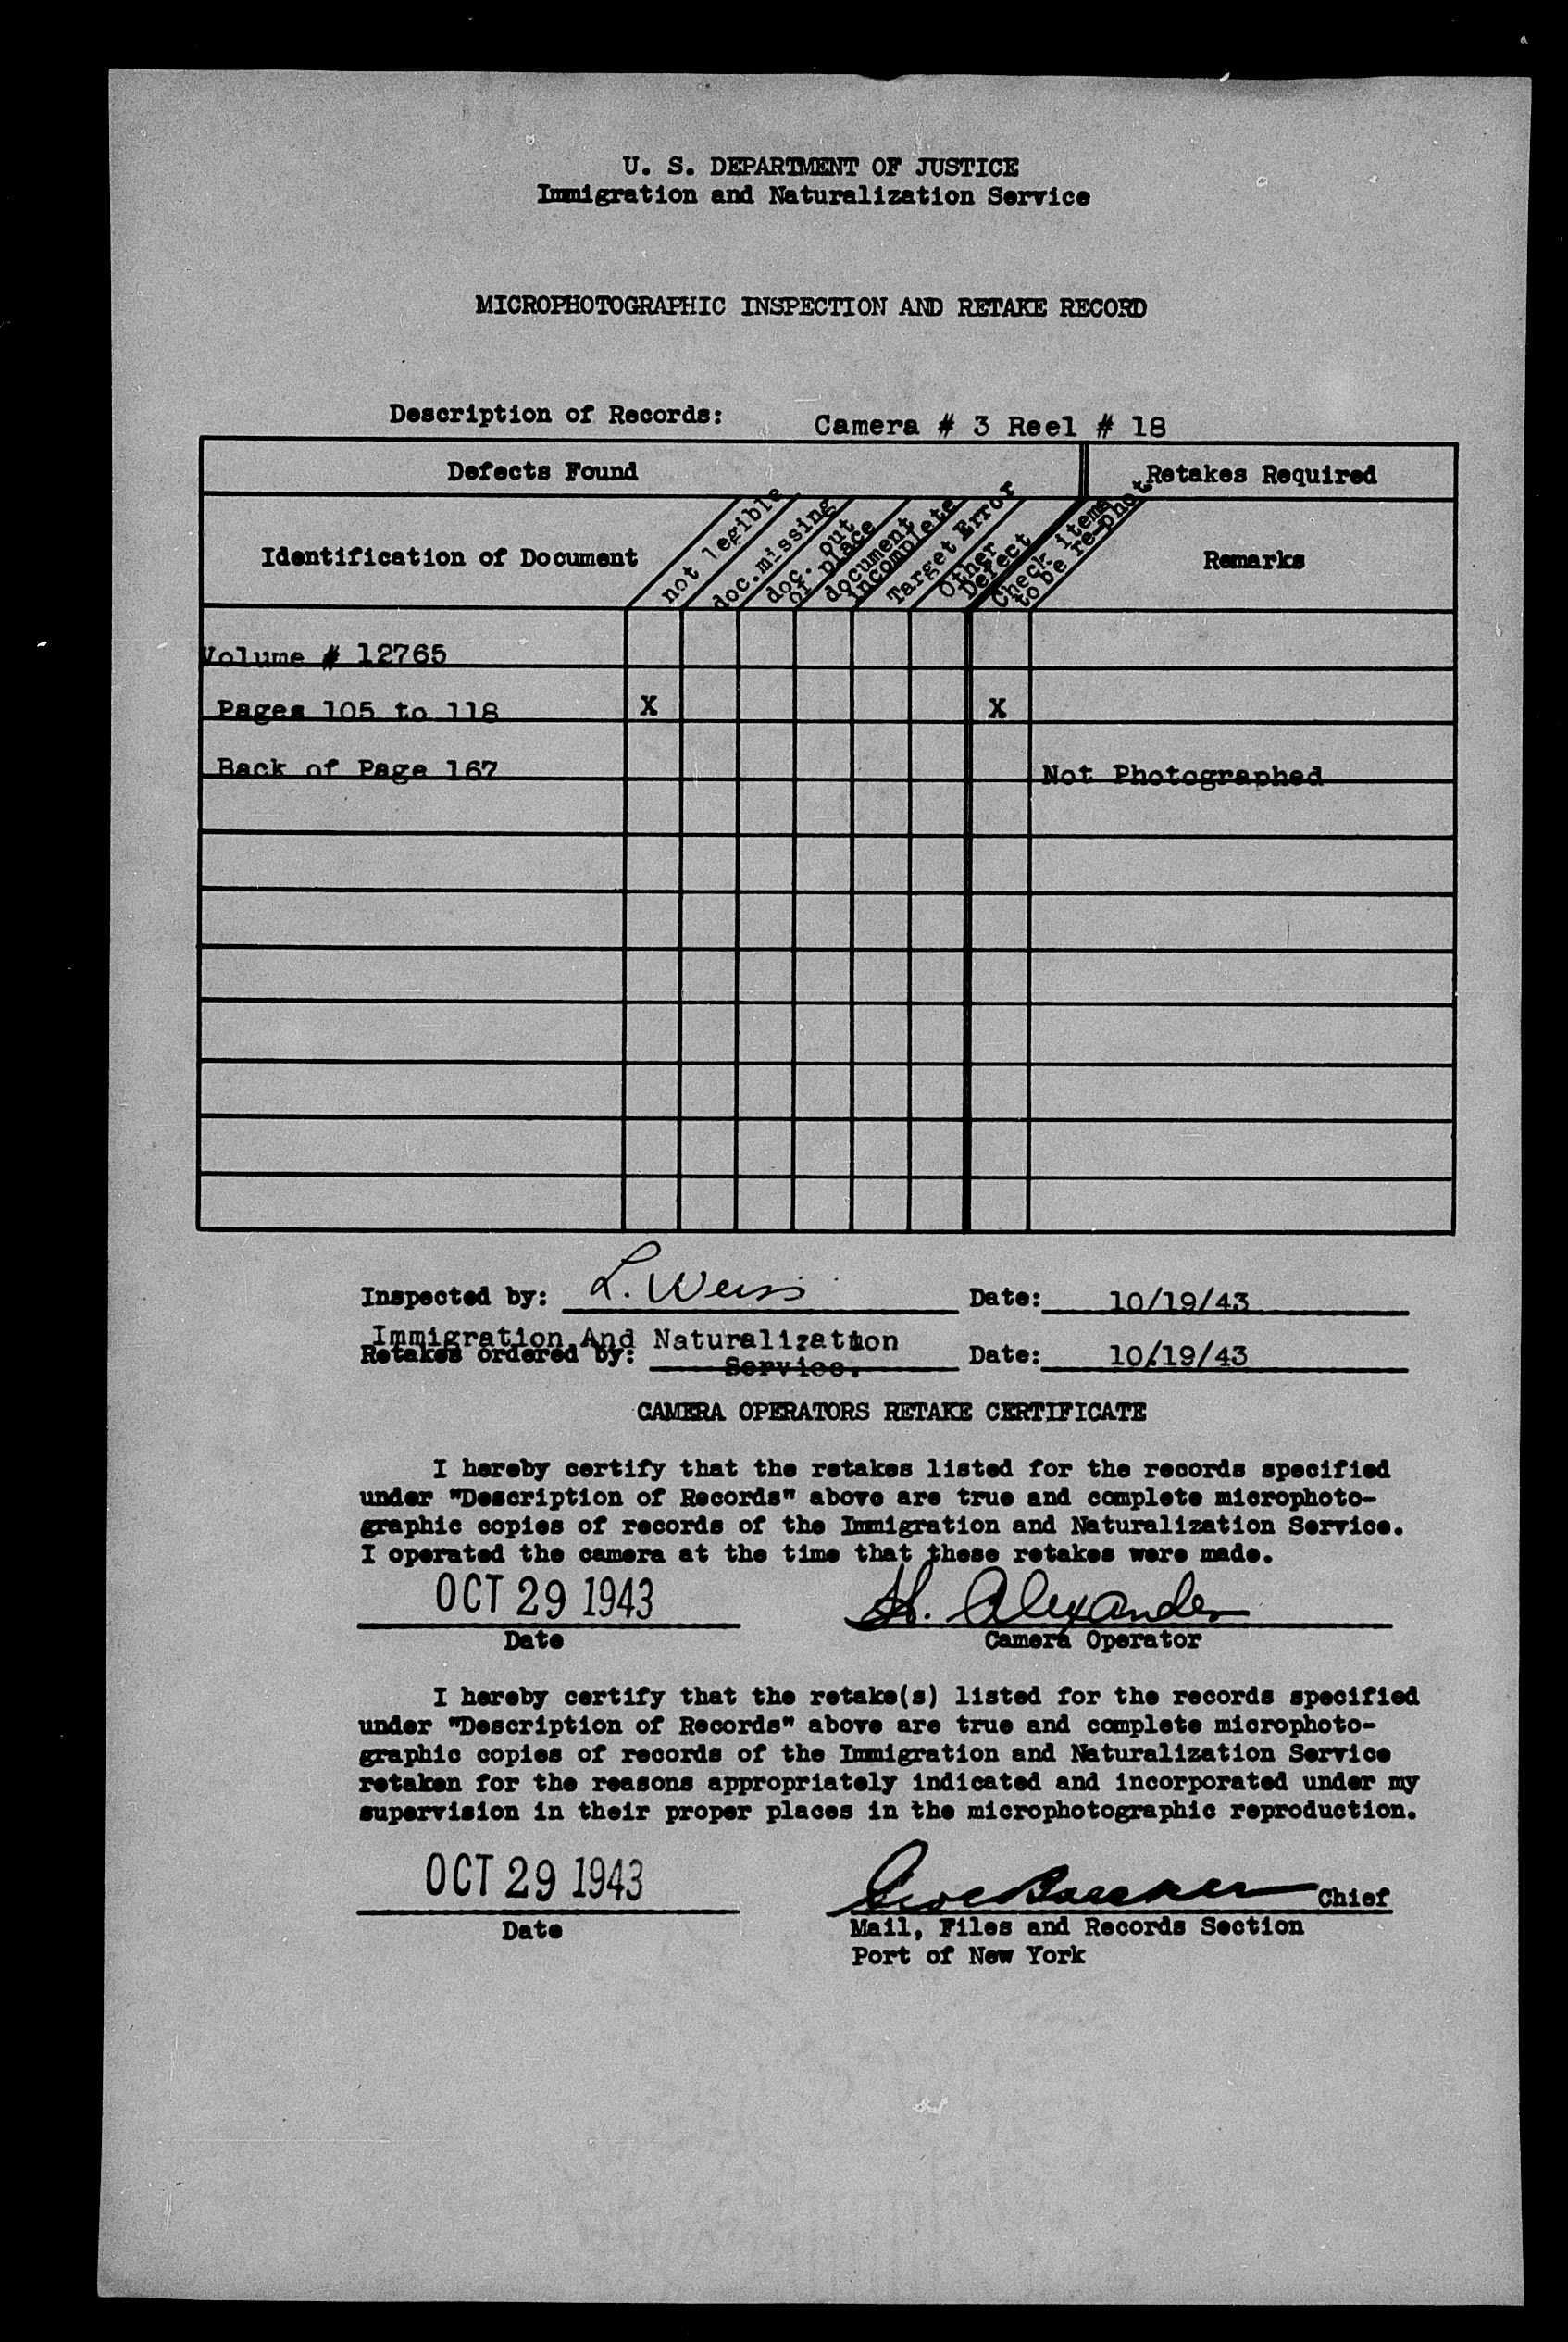 U. S. DEPARTMENT OF JUSTICE
Immigration and Naturalization Service
MICROPHOTOGRAPHIC INSPECTION AND RETAKE RECORD
Description of Records: Camera # 3 Reel # 18
Defects Found Retakes Required
Identification of Document
not legible
doc. missing
doc. out
of place
document
incomplete
Target Error
Other
Defect
Check items
to be re-phot
Remarks
Volume # 12765
Pages 105 to 118 X X
Back of Page 167 Not Photographed
Inspected by: L. Weiss Date: 10/19/43
Immigration And Naturalization
Retakes ordered by: Service. Date: 10/19/43
CAMERA OPERATORS RETAKE CERTIFICATE
I hereby certify that the retakes listed for the records specified
under "Description of Records" above are true and complete microphoto-
graphic copies of records of the Immigration and Naturalization Service.
I operated the camera at the time that these retakes were made.
OCT 29 1943 H. Alexander
Date Camera Operator
I hereby certify that the retake(s) listed for the records specified
under "Description of Records" above are true and complete microphoto-
graphic copies of records of the Immigration and Naturalization Service
retaken for the reasons appropriately indicated and incorporated under my
supervision in their proper places in the microphotographic reproduction.
OCT 29 1943 Chief
Date Mail, Files and Records Section
Port of New York